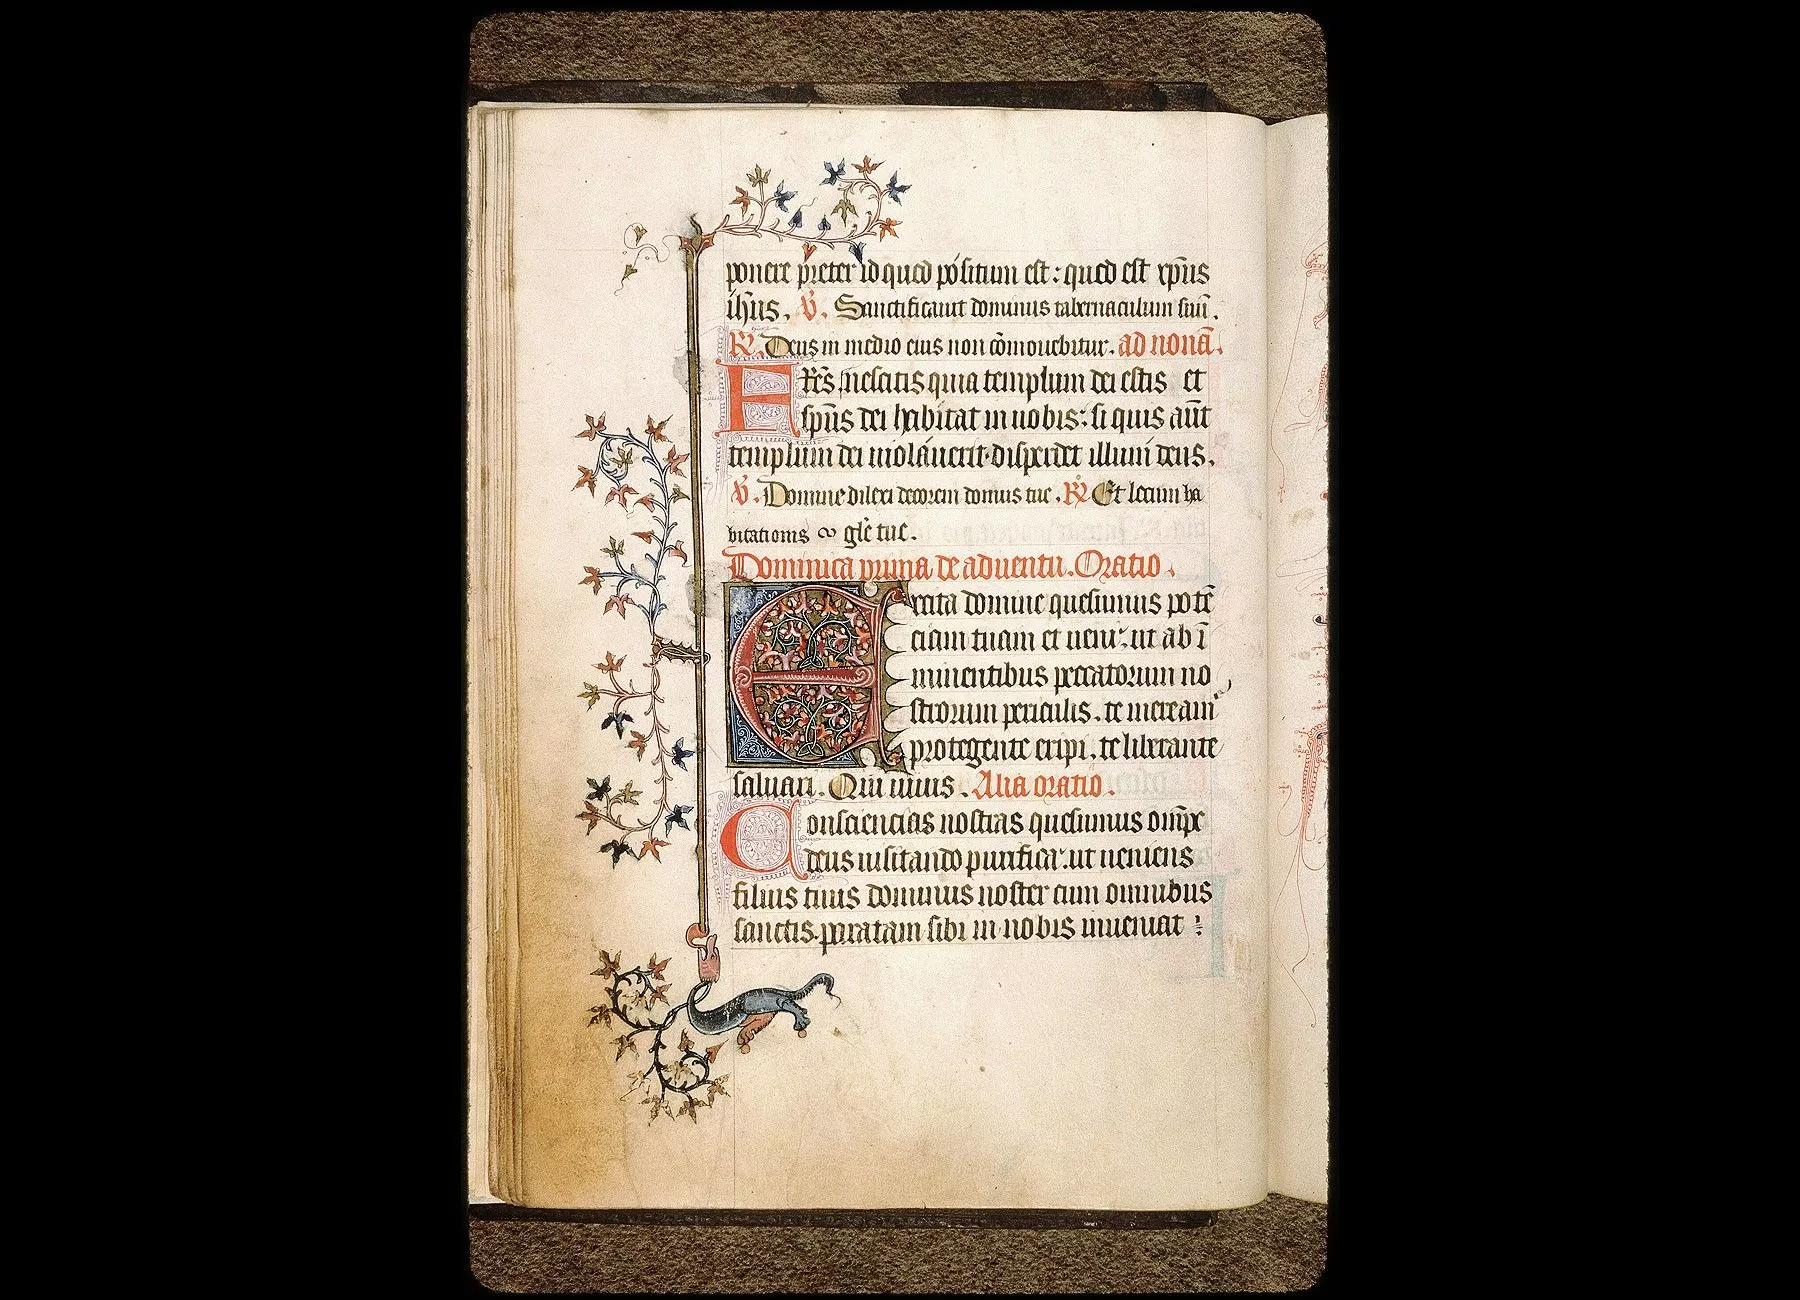 ponere preter id quod positum est : quod est xp̄us
ih̄us . v̄ . Sanctificauit dominus tabernaculum suū .
R̄ . Deus in medio eius non cōmouebitur . ad nonā .
Fr̄es nescitis quia templum dei estis et
sp̄us dei habitat in uobis : si quis aūt
templum dei uiolauerit . disperdet illum deus .
v̄ . Domine dilexi decorem domus tue . R̄ Et locum ha
bitationis gl̄e tue .
Dominica prima de aduentu . Oratio .
Excita domine quesumus potē
ciam tuam et ueni . ut ab ī
minentibus peccatorum no
strorum periculis . te mereamur
protegente eripi . te liberante
saluari . Qui uiuis . Alia oratio .
Consciencias nostras quesumus om̄pc
deus uisitando purifica . ut ueniens
filius tuus dominus noster cum omnibus
sanctis . paratam sibi in nobis inueniat :